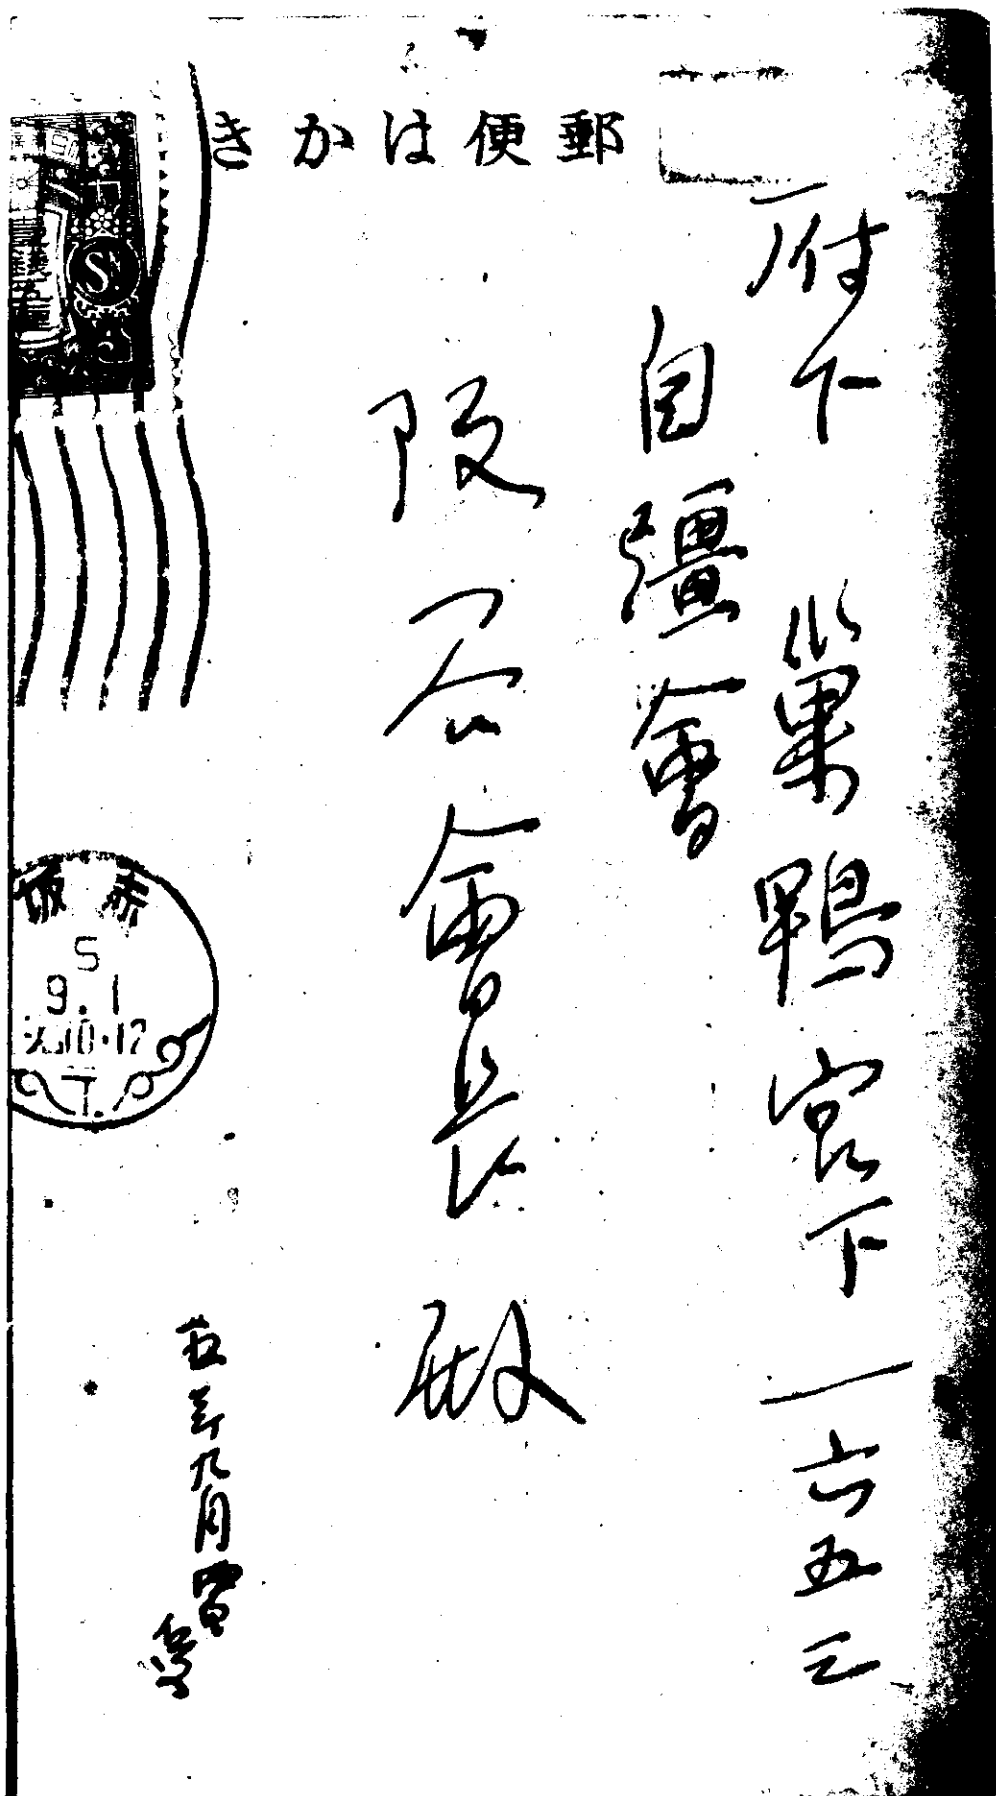 郵便はかき
府下 巣鴨宮下 一六五三
自彊會
阪谷會長 殿
赤坂
5
9.1
10-12
T.
五年九月